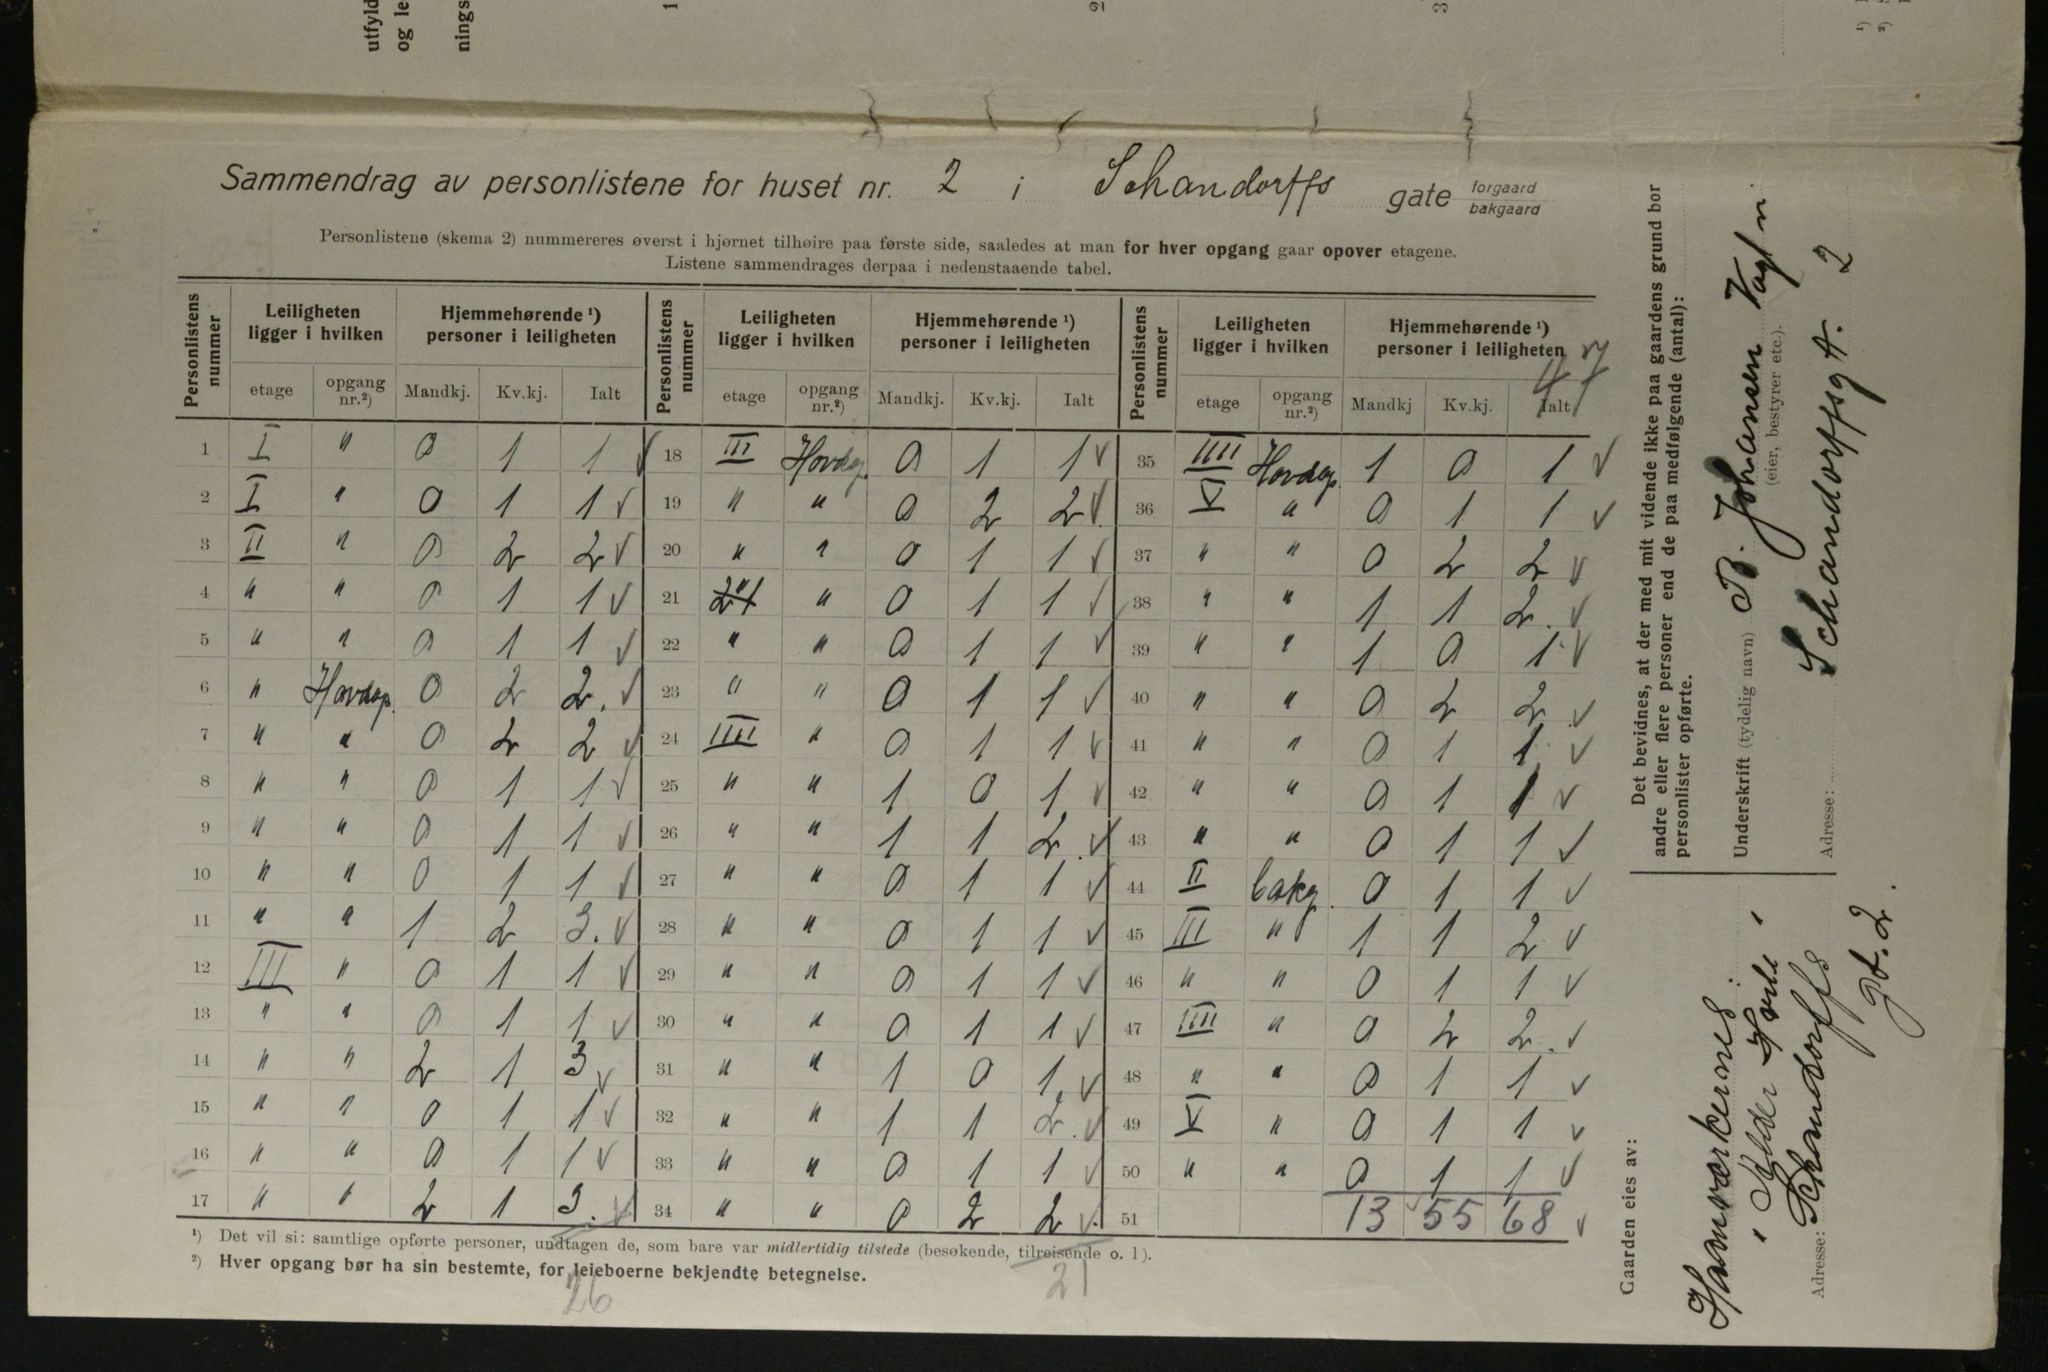 utfyld
og le
nings
1
2
3
¹)
²)
Sammendrag av personlistene for huset nr. 2 i Schandorffs gate forgaard bakgaard
Personlistene (skema 2) nummereres øverst i hjørnet tilhøire paa første side, saaledes at man for hver opgang gaar opover etagene.
Listene sammendrages derpaa i nedenstaaende tabel.
Personlistens nummer | Leiligheten ligger i hvilken | Hjemmehørende ¹) personer i leiligheten | Personlistens nummer | Leiligheten ligger i hvilken | Hjemmehørende ¹) personer i leiligheten | Personlistens nummer | Leiligheten ligger i hvilken | Hjemmehørende ¹) personer i leiligheten
47
etage | opgang nr.²) | Mandkj. | Kv.kj. | Ialt | etage | opgang nr.²) | Mandkj. | Kv.kj. | Ialt | etage | opgang nr.²) | Mandkj | Kv.kj. | Ialt
1 I " 0 1 1 ✓ 18 III Hovdop. 0 1 1 ✓ 35 IIII Hovdop. 1 0 1 ✓
2 I " 0 1 1 ✓ 19 " " 0 2 2 ✓ 36 V " 0 1 1 ✓
3 II " 0 2 2 ✓ 20 " " 0 1 1 ✓ 37 " " 0 2 2 ✓
4 " " 0 1 1 ✓ 21 " " 0 1 1 ✓ 38 " " 1 1 2 ✓
5 " " 0 1 1 ✓ 22 " " 0 1 1 ✓ 39 " " 1 0 1 ✓
6 " Hovdop. 0 2 2 ✓ 23 " " 0 1 1 ✓ 40 " " 0 2 2 ✓
7 " " 0 2 2 ✓ 24 IIII " 0 1 1 ✓ 41 " " 0 1 1 ✓
8 " " 0 1 1 ✓ 25 " " 1 0 1 ✓ 42 " " 0 1 1 ✓
9 " " 0 1 1 ✓ 26 " " 1 1 2 ✓ 43 " " 0 1 1 ✓
10 " " 0 1 1 ✓ 27 " " 0 1 1 ✓ 44 II bakg. 0 1 1 ✓
11 " " 1 2 3 ✓ 28 " " 0 1 1 ✓ 45 III " 1 1 2 ✓
12 III " 0 1 1 ✓ 29 " " 0 1 1 ✓ 46 " " 0 1 1 ✓
13 " " 0 1 1 ✓ 30 " " 0 1 1 ✓ 47 IIII " 0 2 2 ✓
14 " " 2 1 3 ✓ 31 " " 1 0 1 ✓ 48 " " 0 1 1 ✓
15 " " 0 1 1 ✓ 32 " " 1 1 2 ✓ 49 V " 0 1 1 ✓
16 " " 0 1 1 ✓ 33 " " 0 1 1 ✓ 50 " " 0 1 1 ✓
17 " " 2 1 3 ✓ 34 " " 0 2 2 ✓ 51 13 55 68 ✓
¹) Det vil si: samtlige opførte personer, undtagen de, som bare var midlertidig tilstede (besøkende, tilreisende o. l).
²) Hver opgang bør ha sin bestemte, for leieboerne bekjendte betegnelse.
26
21
Det bevidnes, at der med mit vidende ikke paa gaardens grund bor
andre eller flere personer end de paa medfølgende (antal):
personlister opførte.
Underskrift (tydelig navn) B. Johansen Vagtm.
(eier, bestyrer etc.).
Adresse: Schandorffsgt. 2
Gaarden eies av:
Haanværkernes
Adresse: Schandorffs
gt. 2.